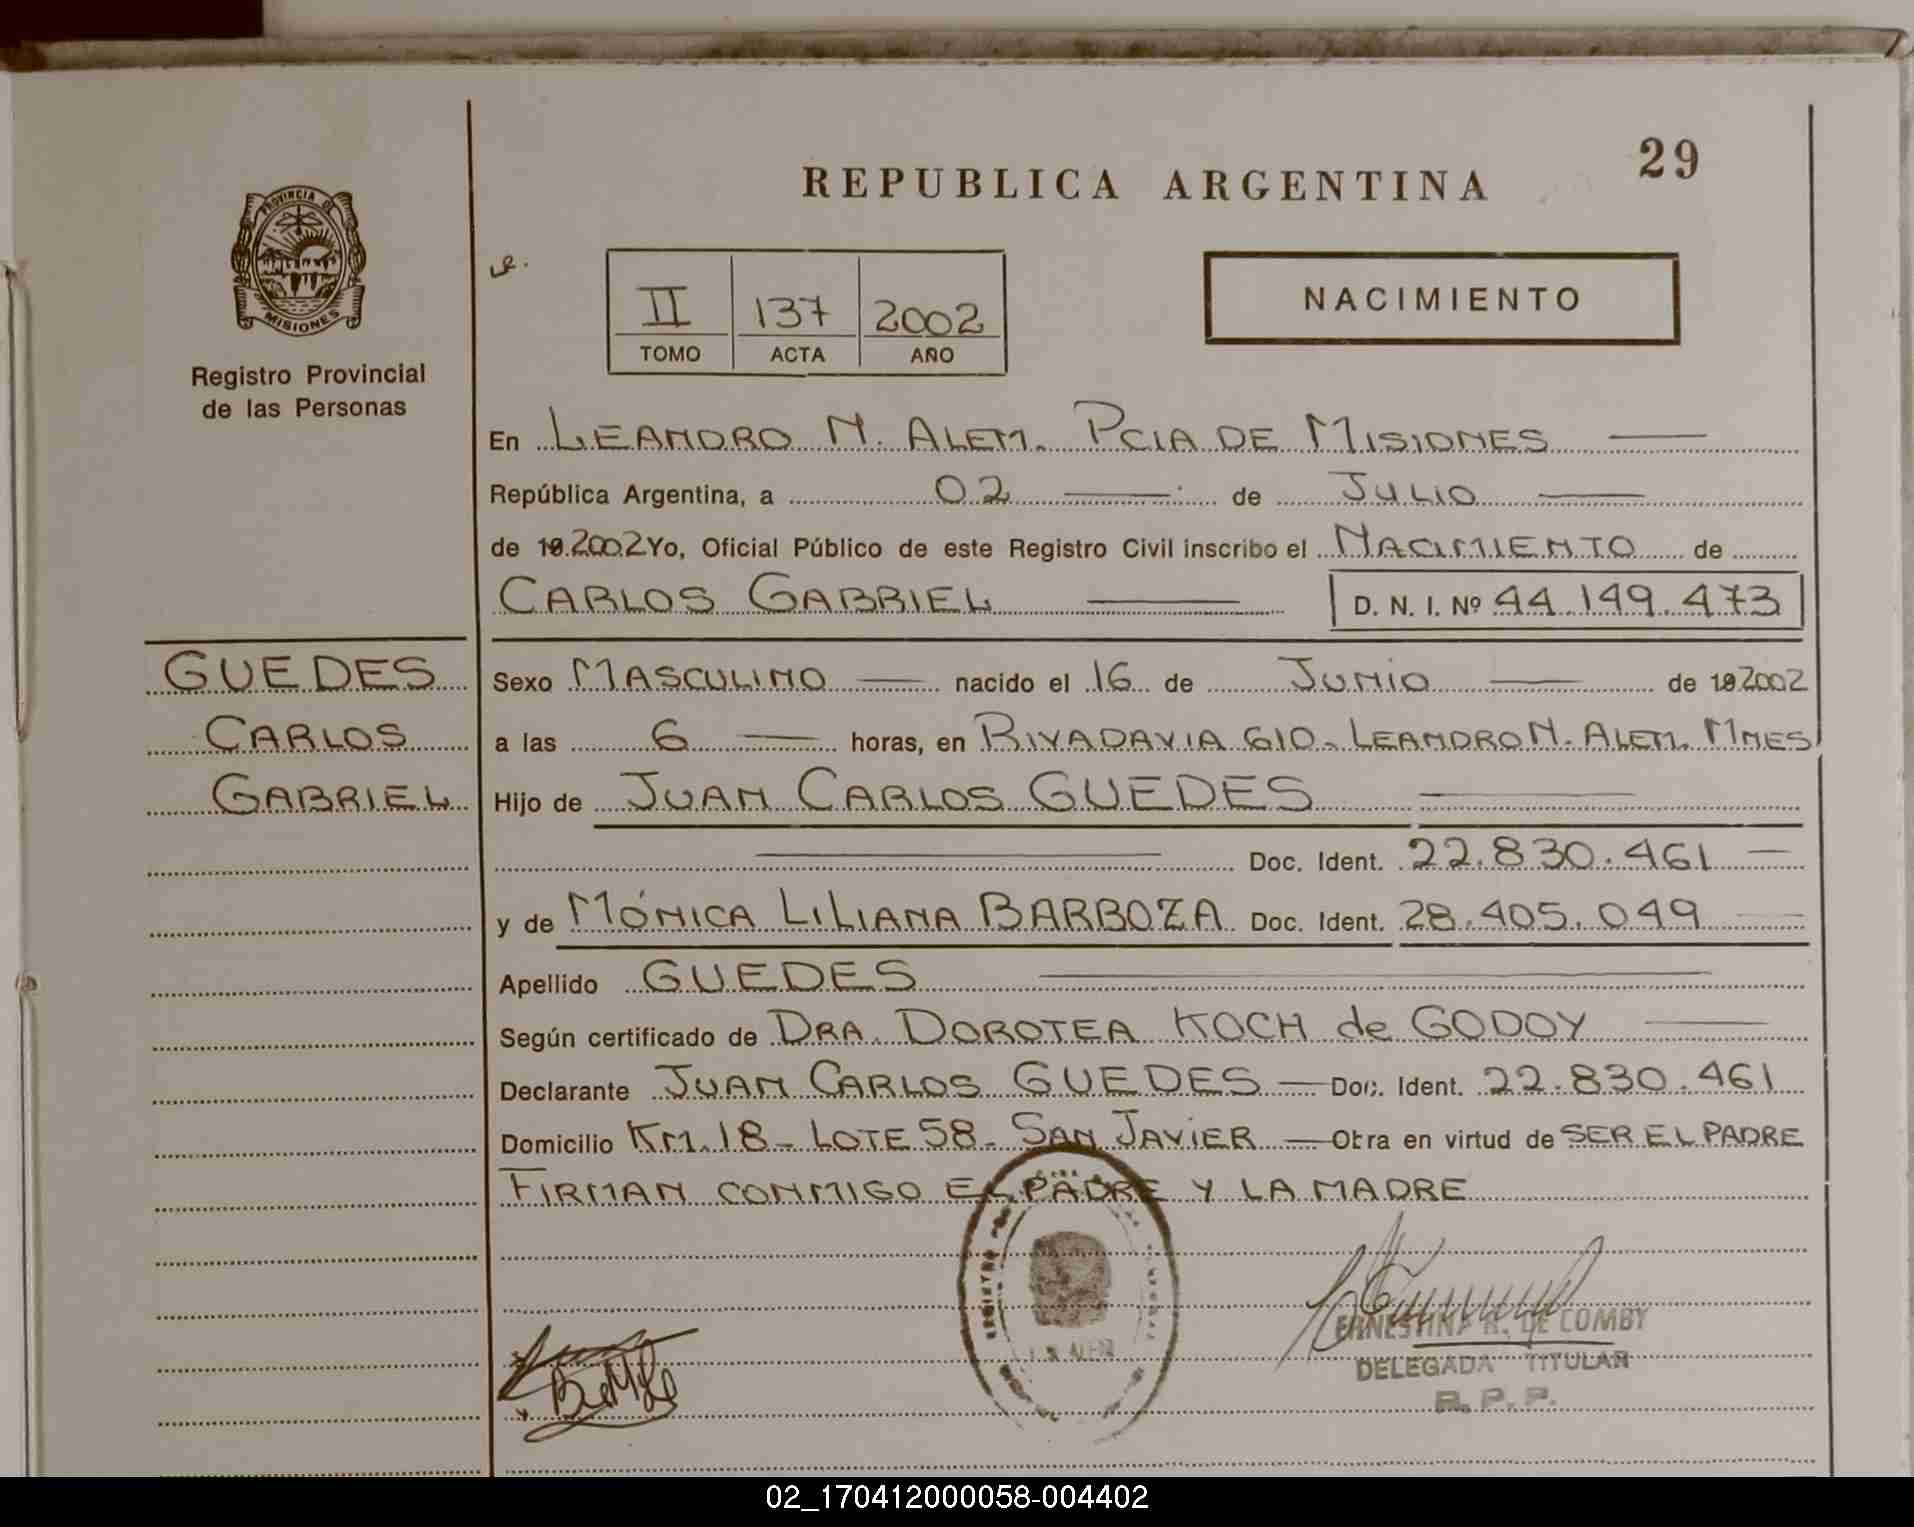 29
REPUBLICA ARGENTINA
PROVINCIA DE
MISIONES
Registro Provincial
de las Personas
II 137 2002
TOMO ACTA AÑO
NACIMIENTO
En LEANDRO N. ALEM. PCIA DE MISIONES
República Argentina, a 02 de JULIO
de 19 2002 Yo, Oficial Público de este Registro Civil inscribo el NACIMIENTO de
CARLOS GABRIEL D. N. I. Nº 44.149.473
GUEDES
CARLOS
GABRIEL
Sexo MASCULINO nacido el 16 de JUNIO de 19 2002
a las 6 horas, en RIVADAVIA 610 - LEANDRO N. ALEM. MNES
Hijo de JUAN CARLOS GUEDES
Doc. Ident. 22.830.461
y de MÓNICA LILIANA BARBOZA Doc. Ident. 28.405.049
Apellido GUEDES
Según certificado de DRA. DOROTEA KOCH de GODOY
Declarante JUAN CARLOS GUEDES Doc. Ident. 22.830.461
Domicilio KM. 18 - LOTE 58 - SAN JAVIER Obra en virtud de SER EL PADRE
FIRMAN CONMIGO EL PADRE Y LA MADRE
ERNESTINA R. DE COMBY
DELEGADA TITULAR
R. P. P.
02_170412000058-004402